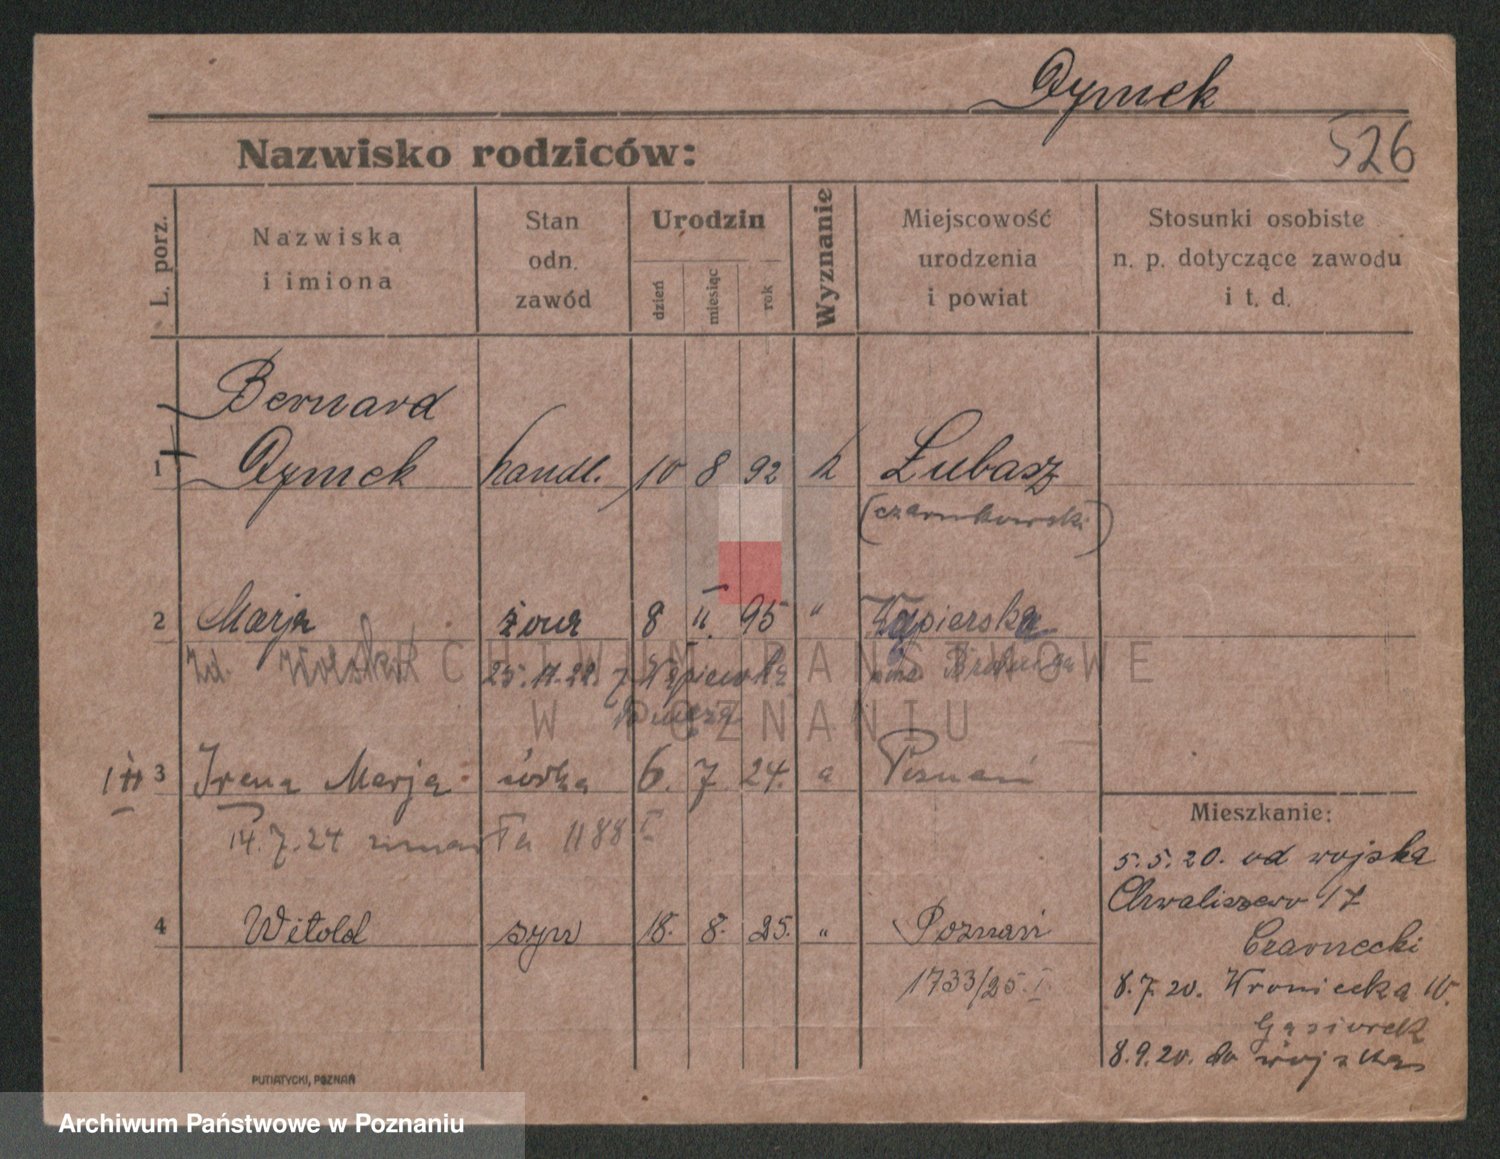 Dymek
Nazwisko rodziców:
526
L. porz.
Nazwiska
i imiona
Stan
odn.
zawód
Urodzin
dzień
miesiąc
rok
Wyznanie
Miejscowość
urodzenia
i powiat
Stosunki osobiste
n. p. dotyczące zawodu
i t. d.
Bernard
1 Dymek handl. 10 8 92 k Łubasz
(czarnkowski)
2 Marja żona 8 II. 95 "
ARCHIWUM PAŃSTWOWE
W POZNANIU
3 Irena Marja córka 6. 7. 24. Poznań
14.7.24 zmarła 1188 I
Mieszkanie:
5.5.20. od wojska
Chwaliszewo 17
Czarnecki
8.7.20. Wroniecka 10.
Gąsiorek
8.9.20. do wojska
4 Witold syn 18. 8. 25. " Poznań
1733/25. I
PUTIATYCKI, POZNAŃ
Archiwum Państwowe w Poznaniu